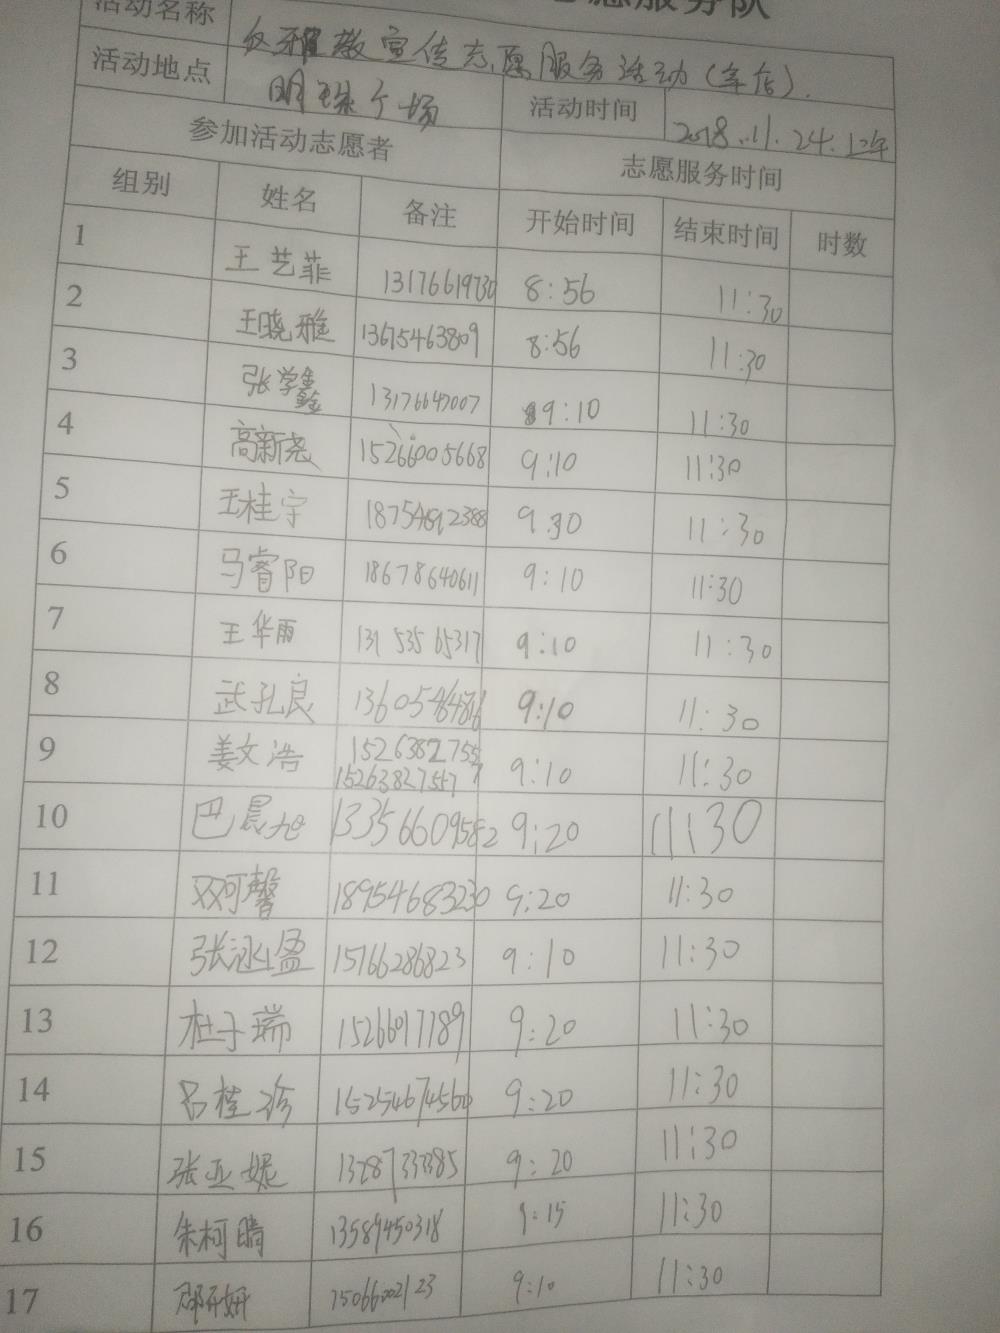 志愿服务队
活动名称 反邪教宣传志愿服务活动(车店).
活动地点 明珠广场 活动时间 2018.11.24.上午
参加活动志愿者 志愿服务时间
组别 姓名 备注 开始时间 结束时间 时数
1 王艺菲 13176619730 8:56 11:30
2 王晓雅 13675463809 8:56 11:30
3 张学鑫 13176647007 9:10 11:30
4 高新尧 15266005668 9:10 11:30
5 王桂宁 9:30 11:30
6 马睿阳 18678640611 9:10 11:30
7 王华雨 13153565317 9:10 11:30
8 武孔良 9:10 11:30
9 姜文浩 15263827557 9:10 11:30
15263827557
10 巴晨旭 13356609582 9:20 11:30
11 双可馨 18954683230 9:20 11:30
12 张泳盈 15766286823 9:10 11:30
13 杜子瑞 15266017189 9:20 11:30
14 吕桂珍 15254674560 9:20 11:30
15 张亚妮 9:20 11:30
16 朱柯晴 13589450318 9:15 11:30
17 15066002123 9:10 11:30